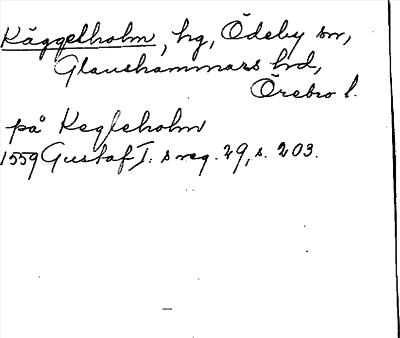 Käggelholm, hg, Ödeby sn,
Glanshammars hd,
Örebro l.
på Kegleholm
1559 Gustaf I:s reg. 29, s. 203.